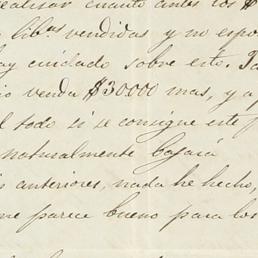 realizar cuanto antes los $
lib.as vendidas y no espo
ay cuidado sobre esto. Ja
io venda $30.000 mas, y a p
l todo si se consigue este p
naturalmente bajará
s anteriores, nada he hecho,
me parece bueno para los